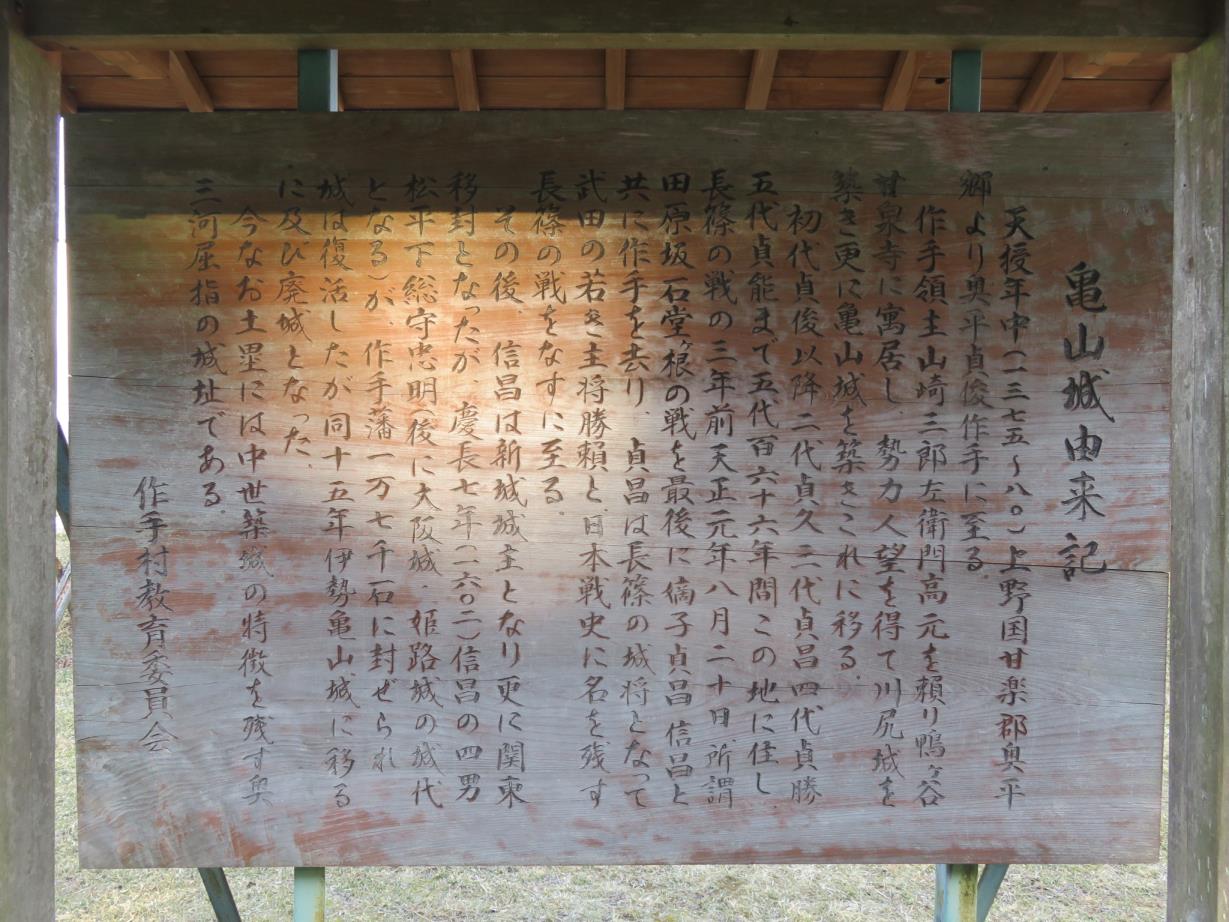 亀山城由来記
天授年中(一三七五〜八〇)上野国甘楽郡奥平
郷より奥平貞俊作手に至る.
作手領主山崎三郎左衛門高元を頼り鴨ヶ谷
甘泉寺に寓居し 勢力人望を得て川尻城を
築き更に亀山城を築きこれに移る.
初代貞俊以降二代貞久三代貞昌四代貞勝
五代貞能まで五代百六十六年間この地に住し、
長篠の戦の三年前天正元年八月二十日、所謂
田原坂石堂ヶ根の戦を最後に嫡子貞昌 信昌と
共に作手を去り、貞昌は長篠の城将となって
武田の若き主将勝頼と、日本戦史に名を残す
長篠の戦をなすに至る.
その後、信昌は新城城主となり更に関東
移封となったが、慶長七年(一六〇二)信昌の四男
松平下総守忠明(後に大阪城・姫路城の城代
となる)が、作手藩一万七千石に封ぜられ
城は復活したが同十五年伊勢亀山城に移る
に及び廃城となった.
今なお土塁には中世築城の特徴を残す奥
三河屈指の城址である.
作手村教育委員会